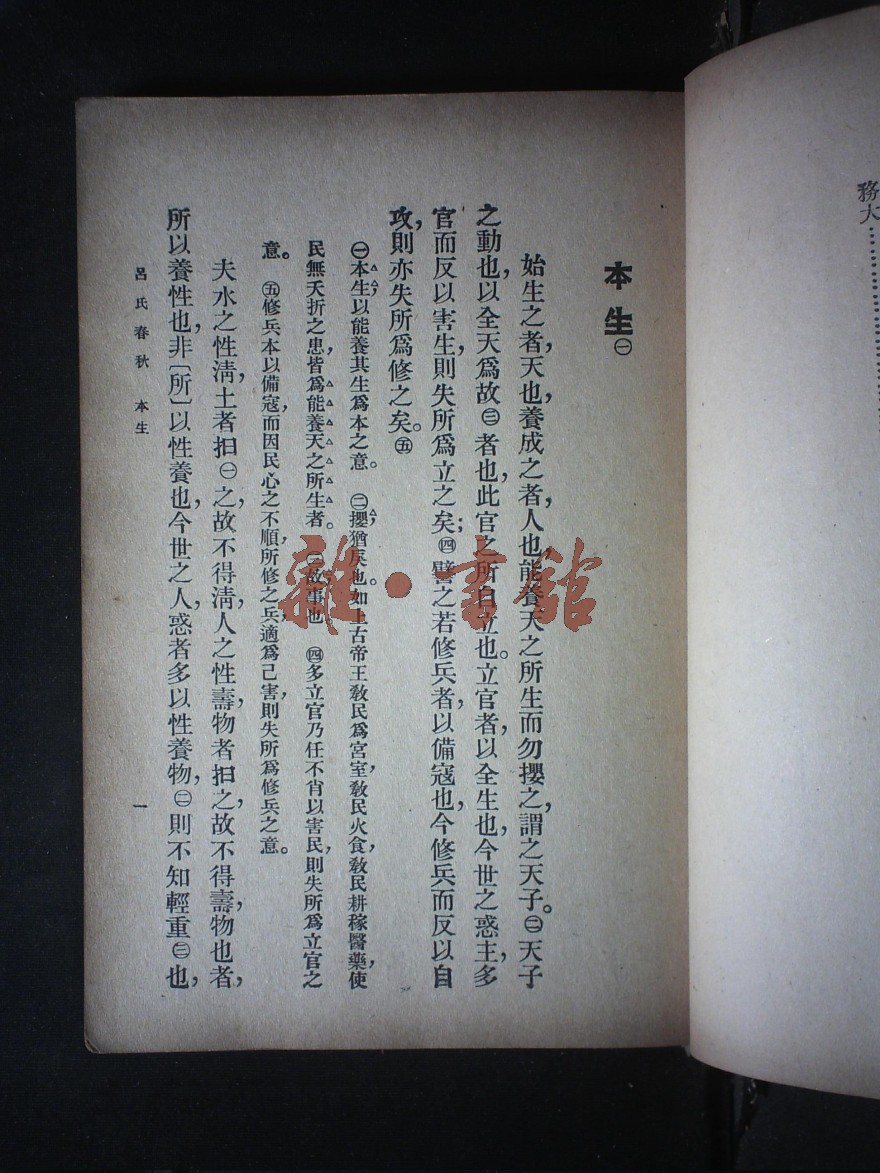 務大……………………
本生㊀
始生之者，天也，養成之者，人也，能養天之所生而勿攖之，謂之天子。㊁天子
之動也，以全天爲故㊂者也，此官之所自立也。立官者，以全生也，今世之惑主，多
官而反以害生，則失所爲立之矣；㊃譬之若修兵者，以備寇也，今修兵而反以自
攻，則亦失所爲修之矣。㊄
㊀本生，以能養其生爲本之意。　㊁攖，猶戾也。如上古帝王敎民爲宮室，敎民火食，敎民耕稼醫藥，使
民無夭折之患，皆爲能養天之所生者。　㊂故，事也　㊃多立官乃任不肖以害民，則失所爲立官之
意。　㊄修兵本以備寇，而因民心之不順，所修之兵，適爲己害，則失所爲修兵之意。
夫水之性淸，土者抇㊀之，故不得淸，人之性壽，物者抇之，故不得壽，物也者，
所以養性也，非〔所〕以性養也，今世之人，惑者多以性養物，㊁則不知輕重㊂也，
呂氏春秋　本生
一
雜·書館